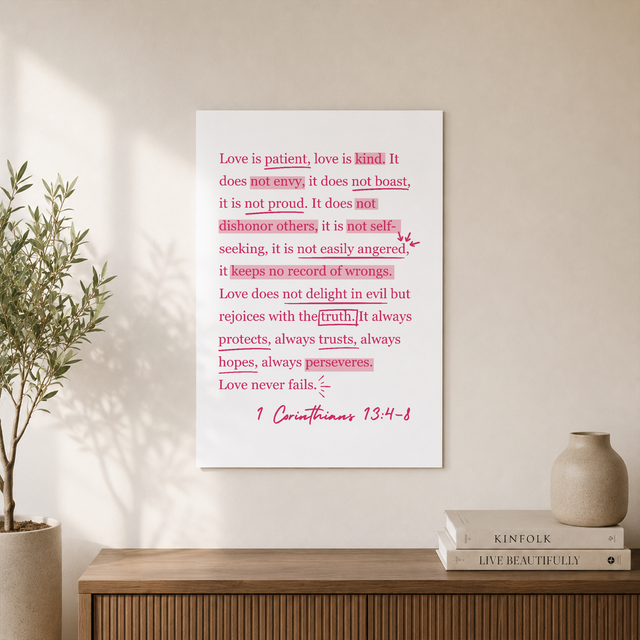 Love is patient, love is kind. It
does not envy, it does not boast,
it is not proud. It does not
dishonor others, it is not self-
seeking, it is not easily angered,
it keeps no record of wrongs.
Love does not delight in evil but
rejoices with the truth. It always
protects, always trusts, always
hopes, always perseveres.
Love never fails.
1 Corinthians 13:4-8
KINFOLK
LIVE BEAUTIFULLY